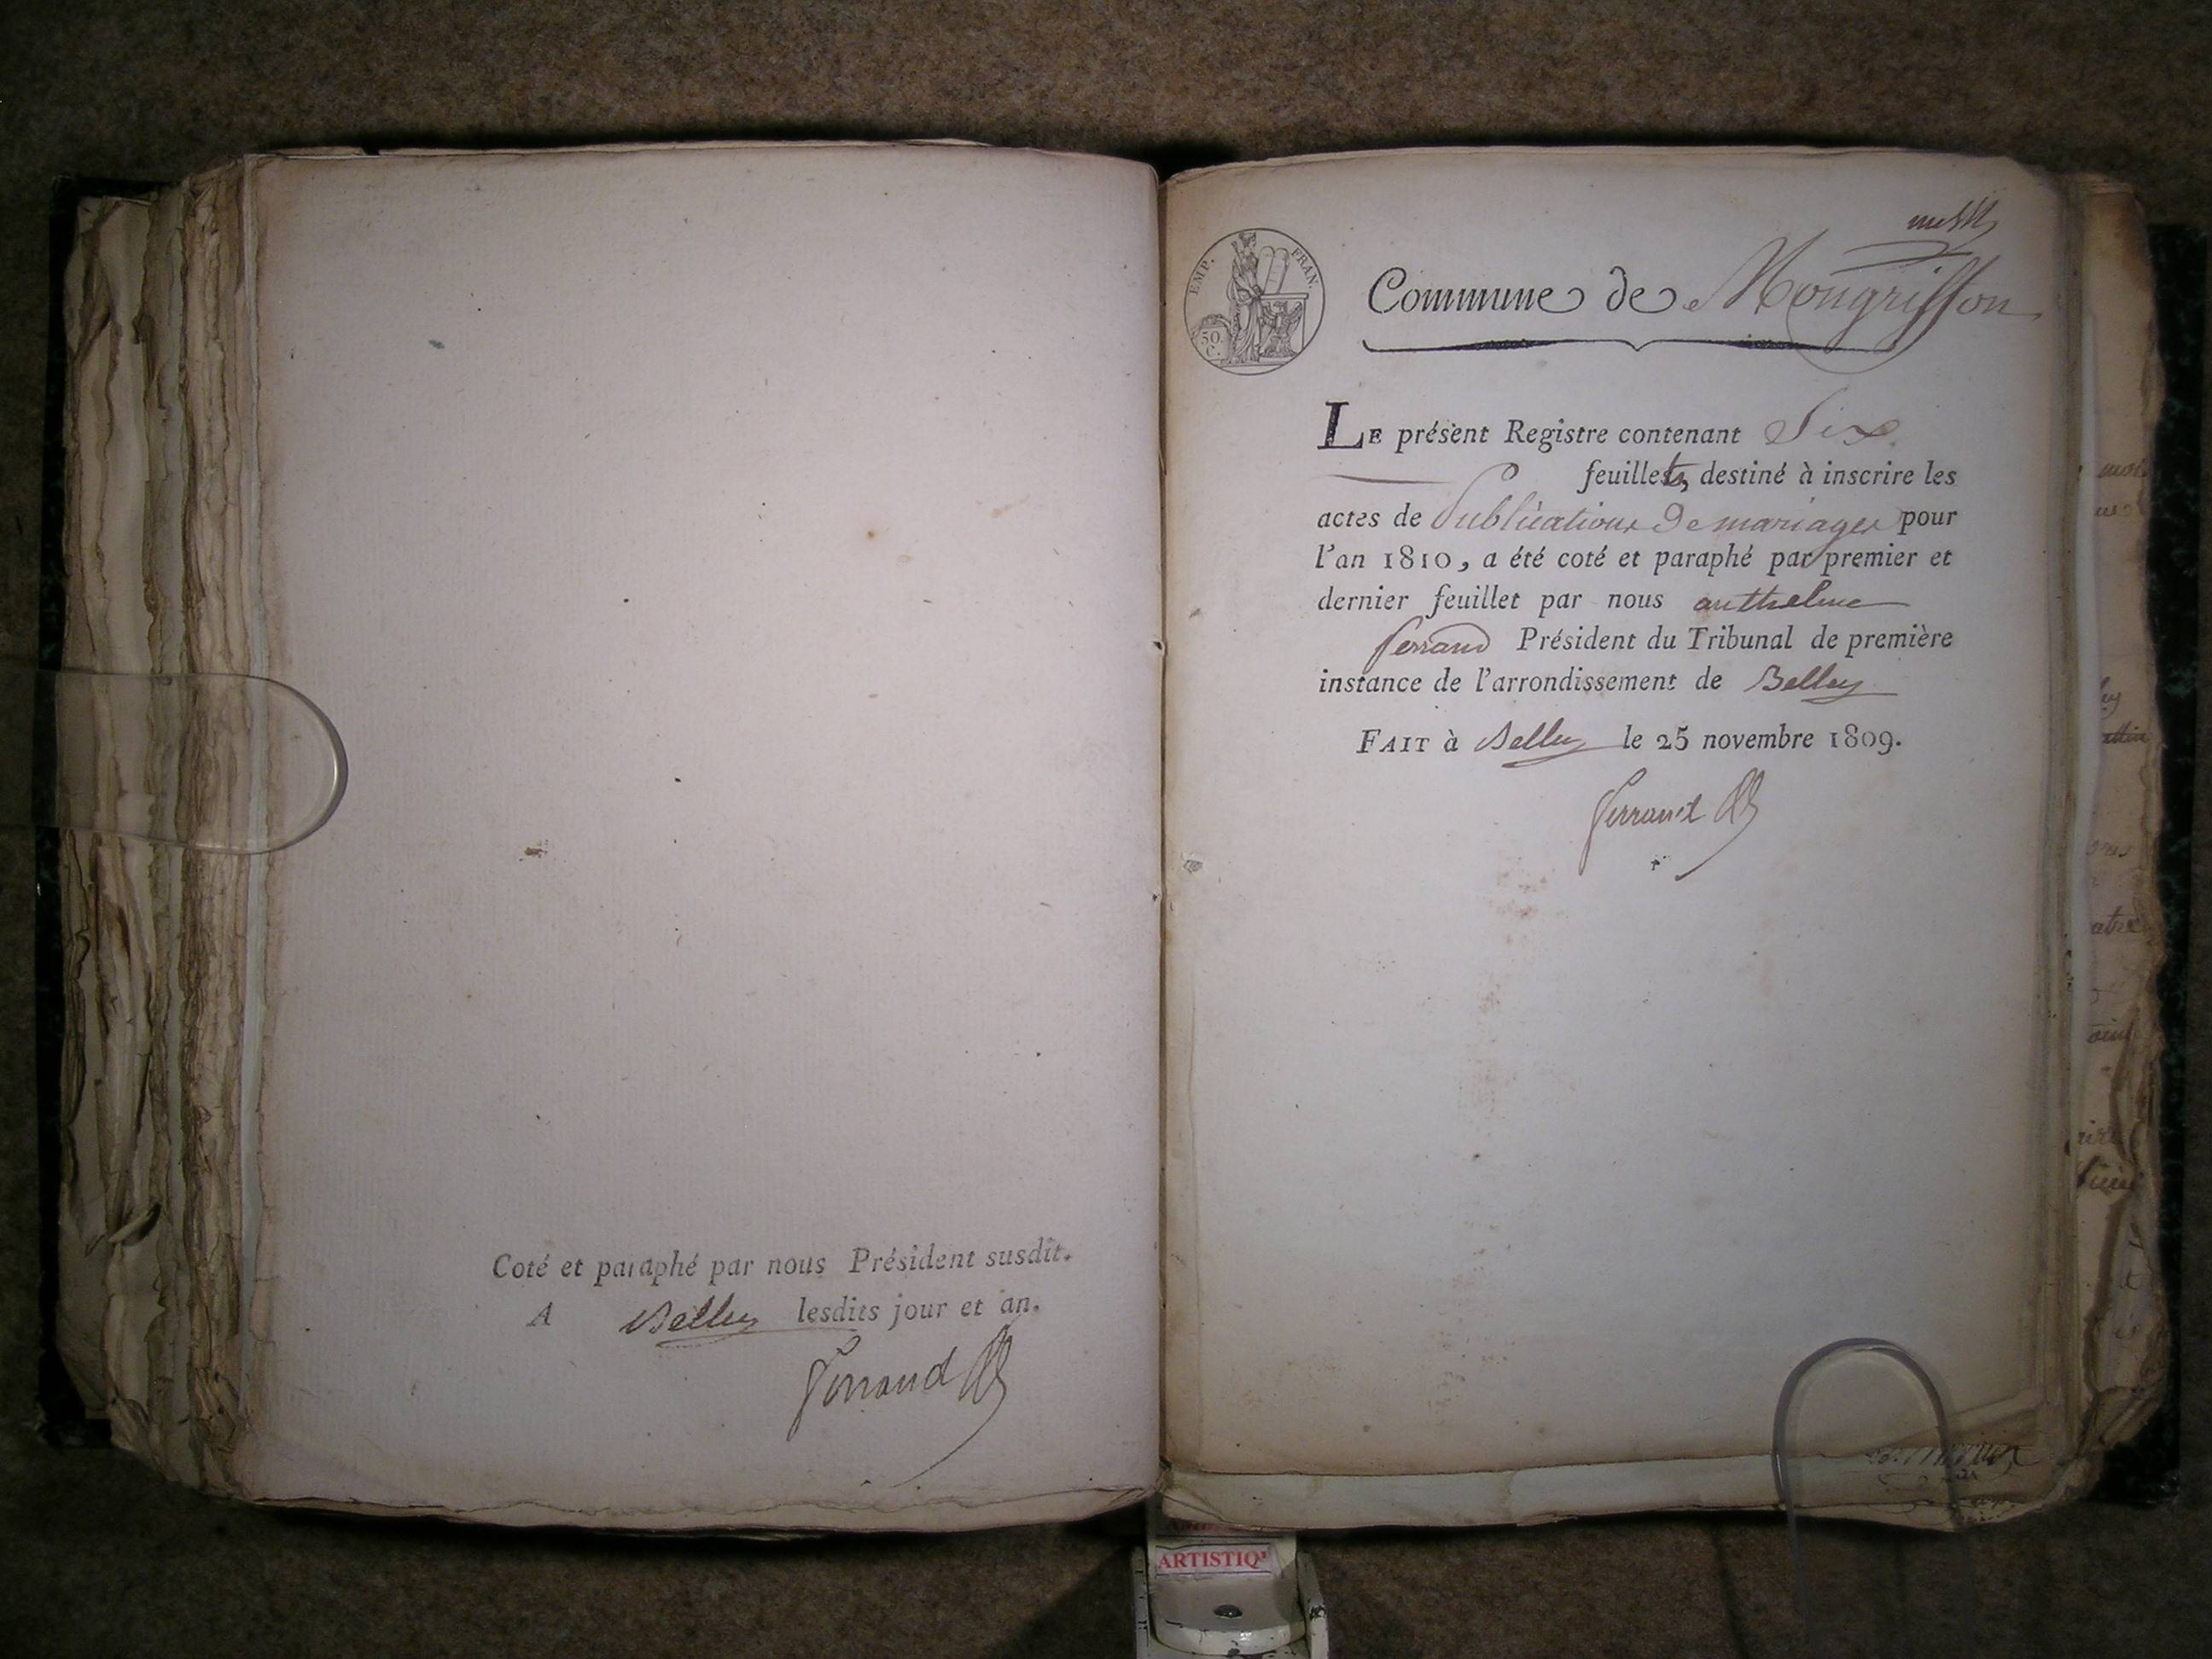 Coté et paraphé par nous Président susdit.
A Belley lesdits jour et an.
Ferrand
EMP. FRAN.
50.
C.
Commune de Mongriffon
LE présent Registre contenant Six
feuillets, destiné à inscrire les
actes de Publications de mariages pour
l'an 1810, a été coté et paraphé par premier et
dernier feuillet par nous anthelme
ferrand Président du Tribunal de première
instance de l'arrondissement de Belley
FAIT à Belley le 25 novembre 1809.
Ferrand
ARTISTIQ